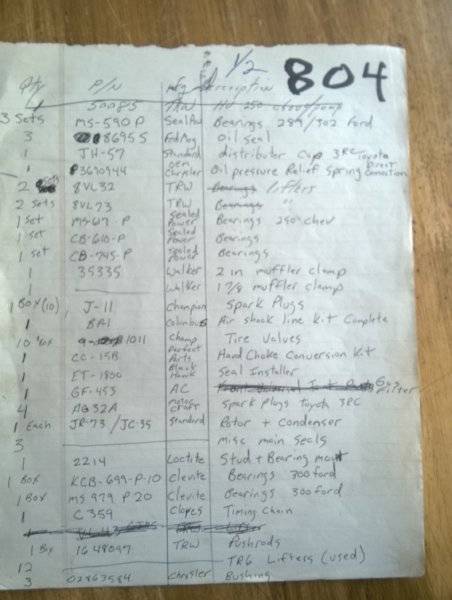 1/2 804
Qty P/N mfg Description
3 Sets MS-590 P Seal Pow Bearings 289/302 Ford
3 86955 Fed Mog Oil seal
1 JH-57 Standard distributer Cap 3RC Toyota
1 P3690944 oem Chrysler Oil pressure Relief Spring Direct Connection
2 8VL32 TRW lifters
2 Sets 8VL73 TRW "
1 Set MS-67-P Sealed Power Bearings 250 chev
1 set CB-610-P Sealed Power Bearings
1 set CB-745-P Sealed Power Bearings
1 35335 Walker 2 in muffler clamp
1 Walker 1 7/8 muffler clamp
1 Box (10) J-11 Champion Spark Plugs
1 BA1 Columbus Air shock line Kit Complete
10 Box 1011 Champ Tire Valves
1 CC-15B Perfect Parts Hand Choke Conversion Kit
1 ET-1800 Black Hawk Seal Installer
1 GF-453 AC Gas Filter
4 AG32A motor craft Spark plugs Toyota 3RC
1 Each JR-73 / JC-35 Standard Rotor + Condenser
3 misc main Seals
1 2214 Loctite Stud + Bearing mount
1 Box KCB-699-P-10 Clevite Bearings 300 ford
1 Box MS 979 P 20 Clevite Bearings 300 ford
1 C 359 Cloyes Timing Chain
1 Bx 1648097 TRW Pushrods
12 TR6 Lifters (used)
3 02863584 Chrysler Bushing